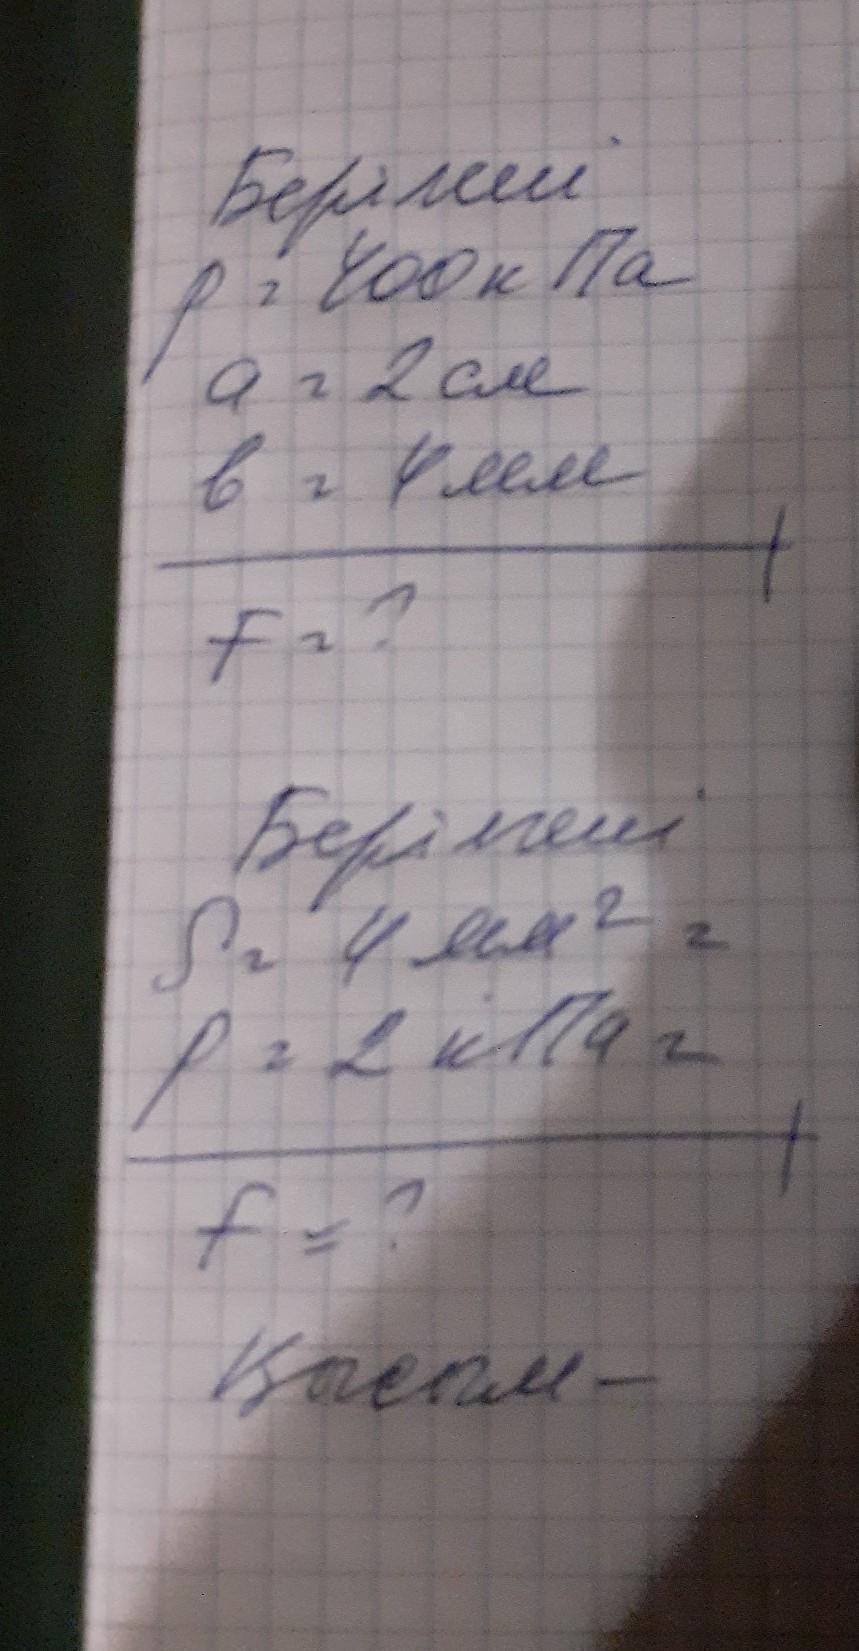 Берілгені
p = 400 кПа
a = 2 см
b = 4 мм
F = ?
Берілгені
S = 4 мм² =
p = 2 кПа =
F = ?
Қысым –